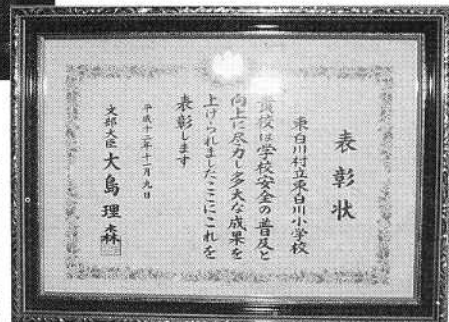 表彰状
東白川村立東白川小学校
貴校は学校安全の普及と
向上に尽力し多大な成果を
上げられましたここにこれを
表彰します
平成十二年十一月九日
文部大臣 大島理森